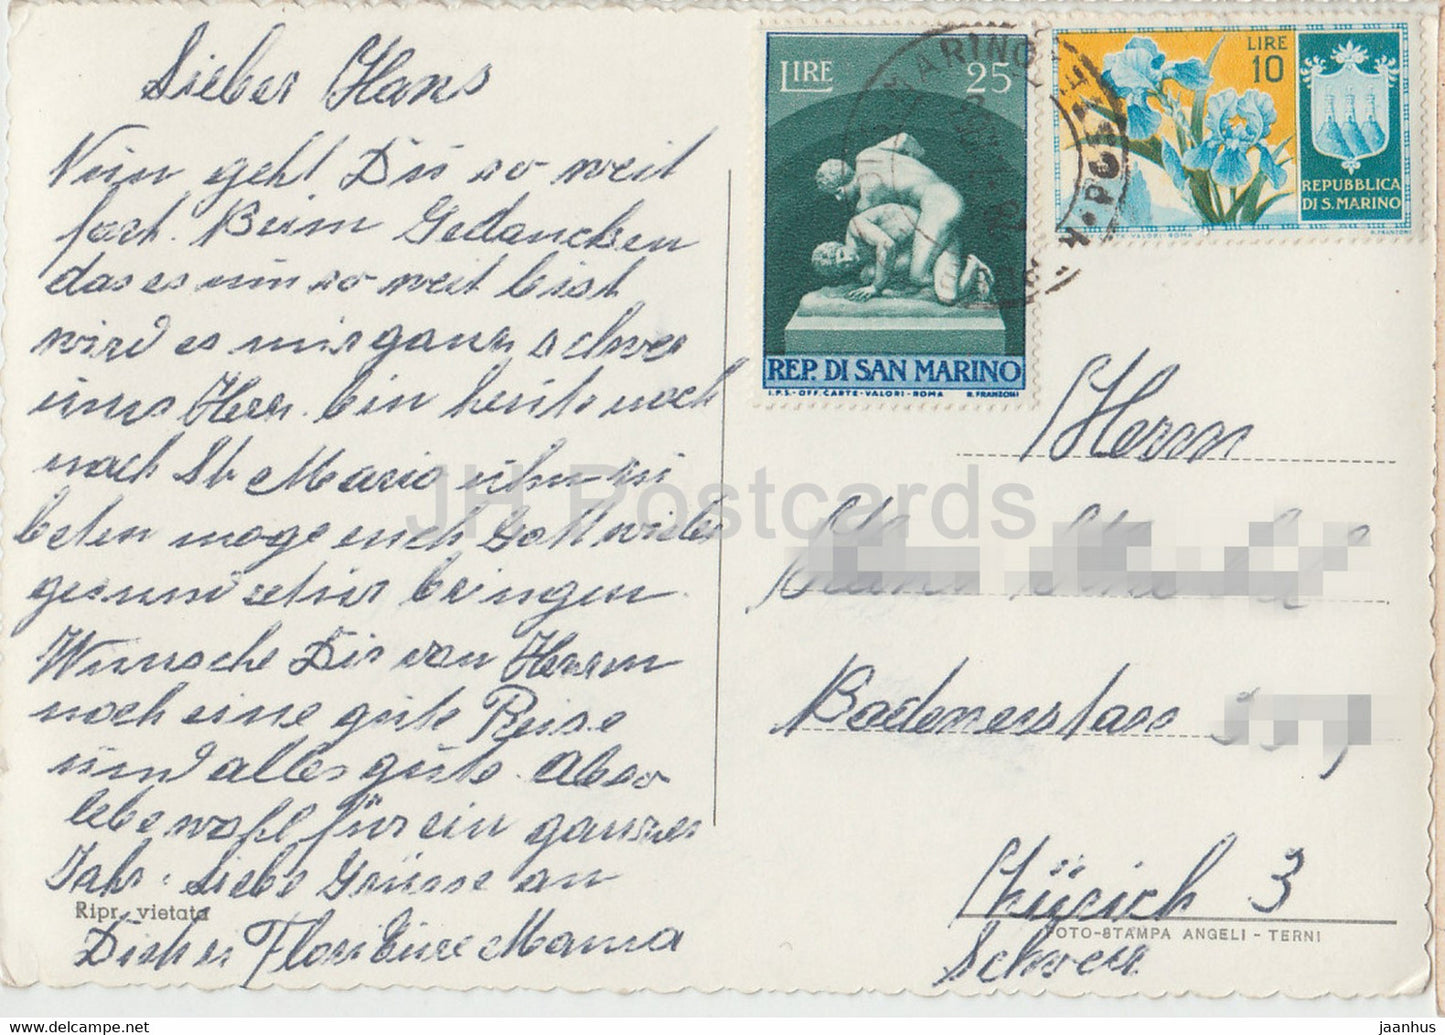 Lieber Hans
Nun geht Du so weit
fort. Beim Gedancken
das es nun so weit bist
wird es mir ganz schwer
ums Herz. bin heute noch
nach St Mario ihm zu
beten moge euch Gott wieder
gesund zetur bringen.
Wunsche Dir von Herzen
noch eine gute Reise
und alles gute. Also
lebe wohl für ein ganzes
Jahr. Liebe Grüsse an
Ripr. vietata
Dich Eure Mama
LIRE 25
REP. DI SAN MARINO
I.P.S.-OFF. CARTE-VALORI-ROMA R. FRANZONI
LIRE
10
REPUBBLICA
DI S. MARINO
R. FRANZONI
Herrn
Badenerstass
Zürich 3
FOTO-STAMPA ANGELI - TERNI
Schweiz
JH Postcards
www.delcampe.net
jaanhus